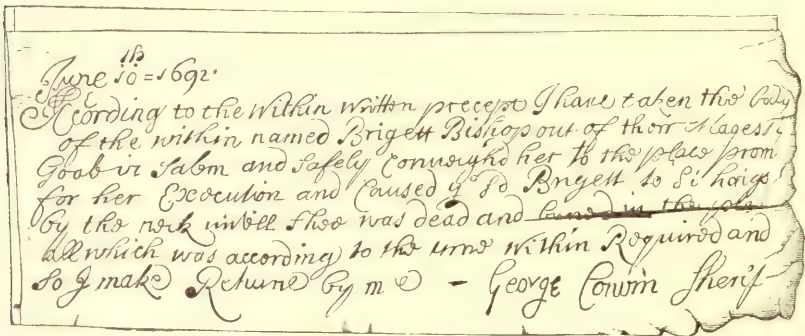 June 10th = 1692.
Acording to the Within Written precept I have taken the body
of the within named Brigett Bishop out of their Magesti
Goale in Salem and Safely Conveighd her to the place prom
for her Execution and Caused ye sd Brigett to be hang
by the neck untill Shee was dead and buried in the pla
all which was according to the time Within Required and
So I make Returne by me - George Corwin Sherif